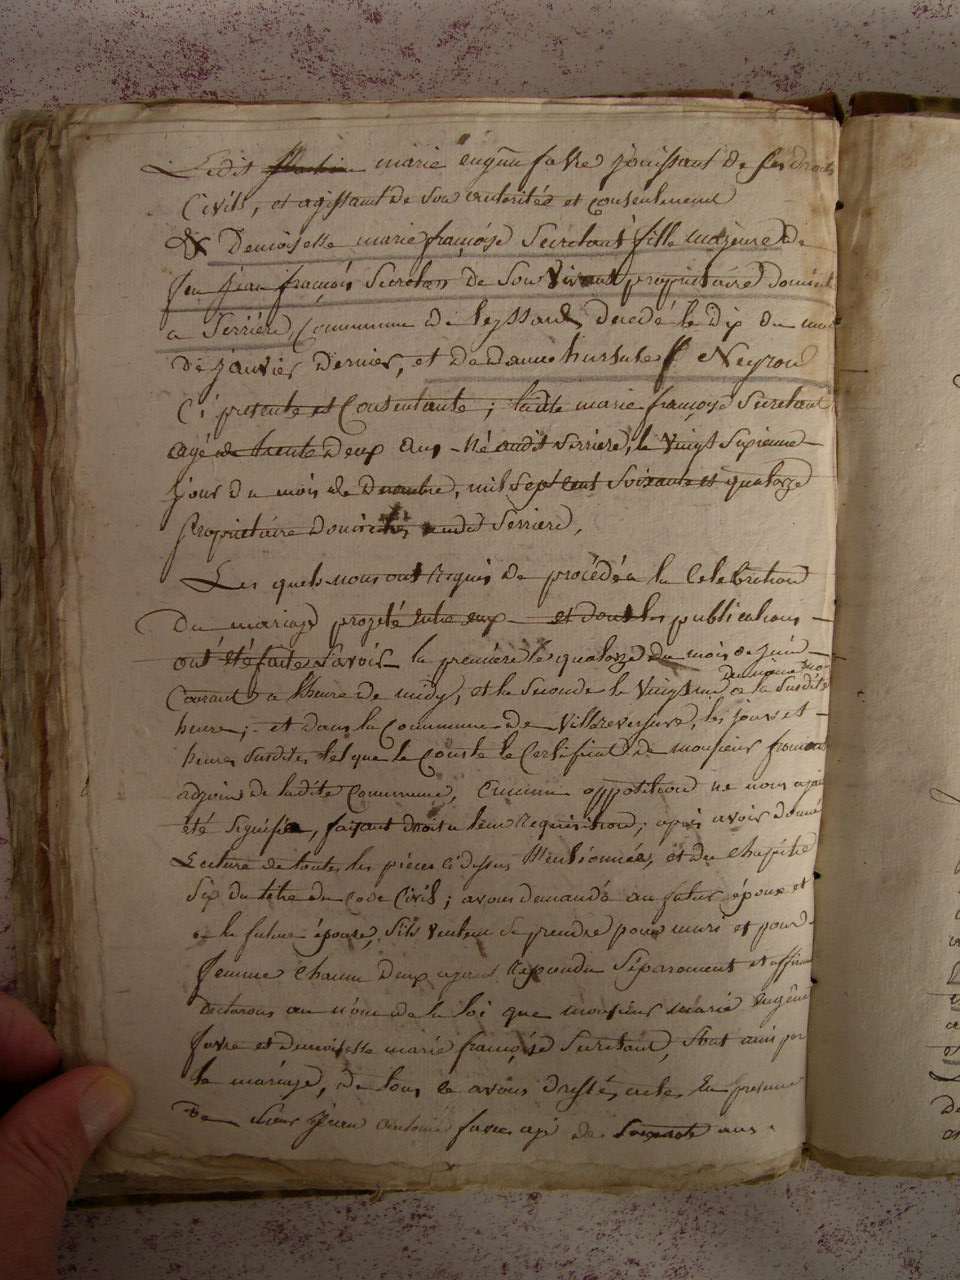 Ledit marie eugene favre jouissant de ses droits
Civils, et agissant de son autoritée et consentement
& Demoiselle marie françoise Secretant fille majeure de
feu jean françois Secretan de Son vivant propriétaire domicil
a Serriere, Commune de leyssard, decedé le dix du mois
de janvier dernier, et de dame hursule Neyroud
Ci présente et Consentante; ladite marie françoise Secretant
agé de trente deux ans né audit Serriere, le vingt Sixieme
jour du mois de decembre, mil Sept cent Soixante et quatorze
propriétaire domiciliée audit Serriere,
Les quels nous ont requis de procédé a la Celebration
du mariage projeté entre eux et dont les publications
ont été faites Savoir la première le quatorze du mois de juin
Courant a lheure de midy, et la Seconde le vingt une de la Susdite
heure; et dans la Commune de villereversure, les jours et
heures Susdites tel que le Conste le Certificat de monsieur
adjoin de ladite Commune, aucune oppotition ne nous ayan
été Signifié, faisant droit a leur Requisition; après avoir donné
Lecture de toutes les pièces cidessus Mentionnées, et du Chapitre
Six du titre du Code Civil; avons demandé au futur époux et
a la future épouse, Sils veulent Se prendre pour mari et pour
femme Chacun deux ayant Repondu Séparement et affirm
declarons au nom de la loi que monsieur marie eugène
favre et demoiselle marie françoise Secretant, Sont unis par
le mariage, de tous ce avons dressé acte En presence
De Sieur jean antoine favre agé de Soixante ans